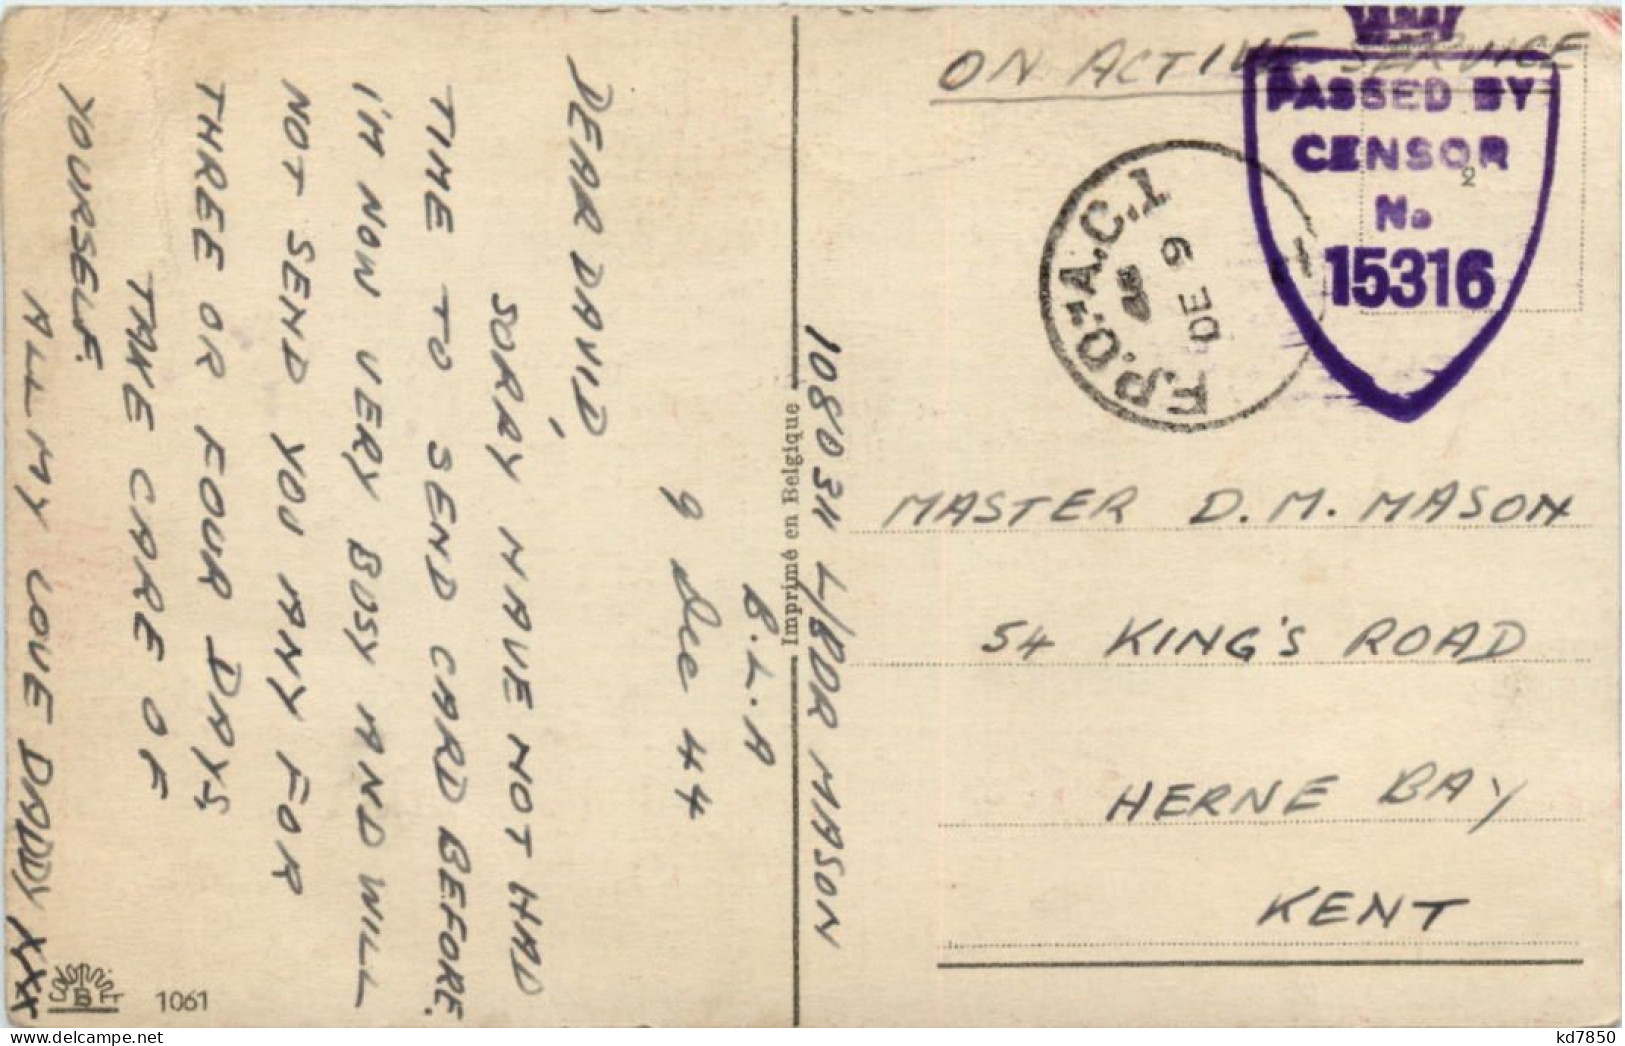 ON ACTIVE SERVICE
PASSED BY
CENSOR
No
15316
2
F.P.O.-A.C.1
DE
1080311 L/BDR MASON
B.L.A
9 Dec 44
DEAR DAVID,
SORRY HAVE NOT HAD
TIME TO SEND CARD BEFORE.
I'M NOW VERY BUSY AND WILL
NOT SEND YOU ANY FOR
THREE OR FOUR DAYS,
TAKE CARE OF
YOURSELF.
ALL MY LOVE DADDY XXX
Imprimé en Belgique
MASTER D. M. MASON
54 KING'S ROAD
HERNE BAY
KENT
1061
delcampe.net
kd7850